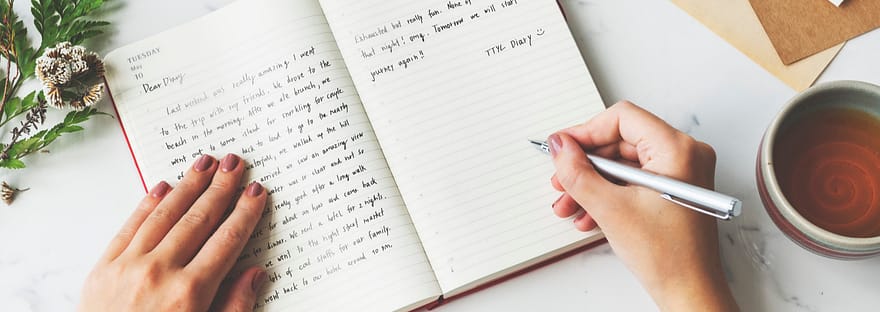 TUESDAY
May
10
Dear Diary
Last weekend was really amazing I went
to the trip with my friends. We drove to the
beach in the morning. After we ate brunch, we
went out to some island for snorkling for couple
back to land to go to the nearby
we walked up the hill
arrived we saw an amazing view
was so clear and not so
really good after a long walk
for about an hour and came back
for dinner. We rent a hotel for 2 nights.
we went to the night street market
lots of cool stuffs for our family.
went back to our hotel around 10 pm.
Exhausted but really fun. None of
that night! omg. Tomorrow we will start
journey again!!
TTYL Diary